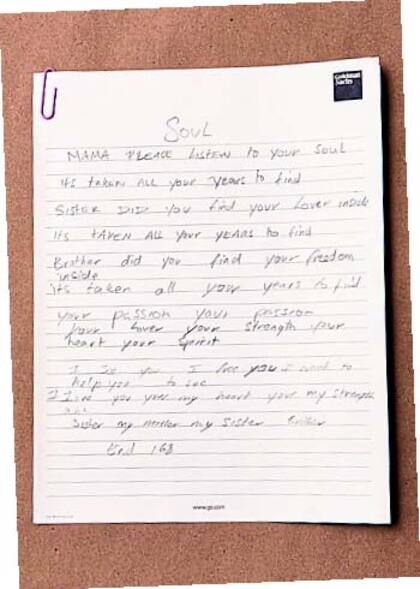 Goldman
Sachs
SOUL
MAMA PLEASE LISTEN to your Soul
Its taken ALL your years to find
SISTER DID you find your Lover inside
Its TAKEN ALL your YEARS to find
Brother did you find your freedom
inside
Its taken all your years to find
your passion your passion
your lover your strength your
heart your spirit
I see you I free you I want to
help you to see
I Love you your my heart your my strength
Sister my mother my sister
End 168
www.gs.com